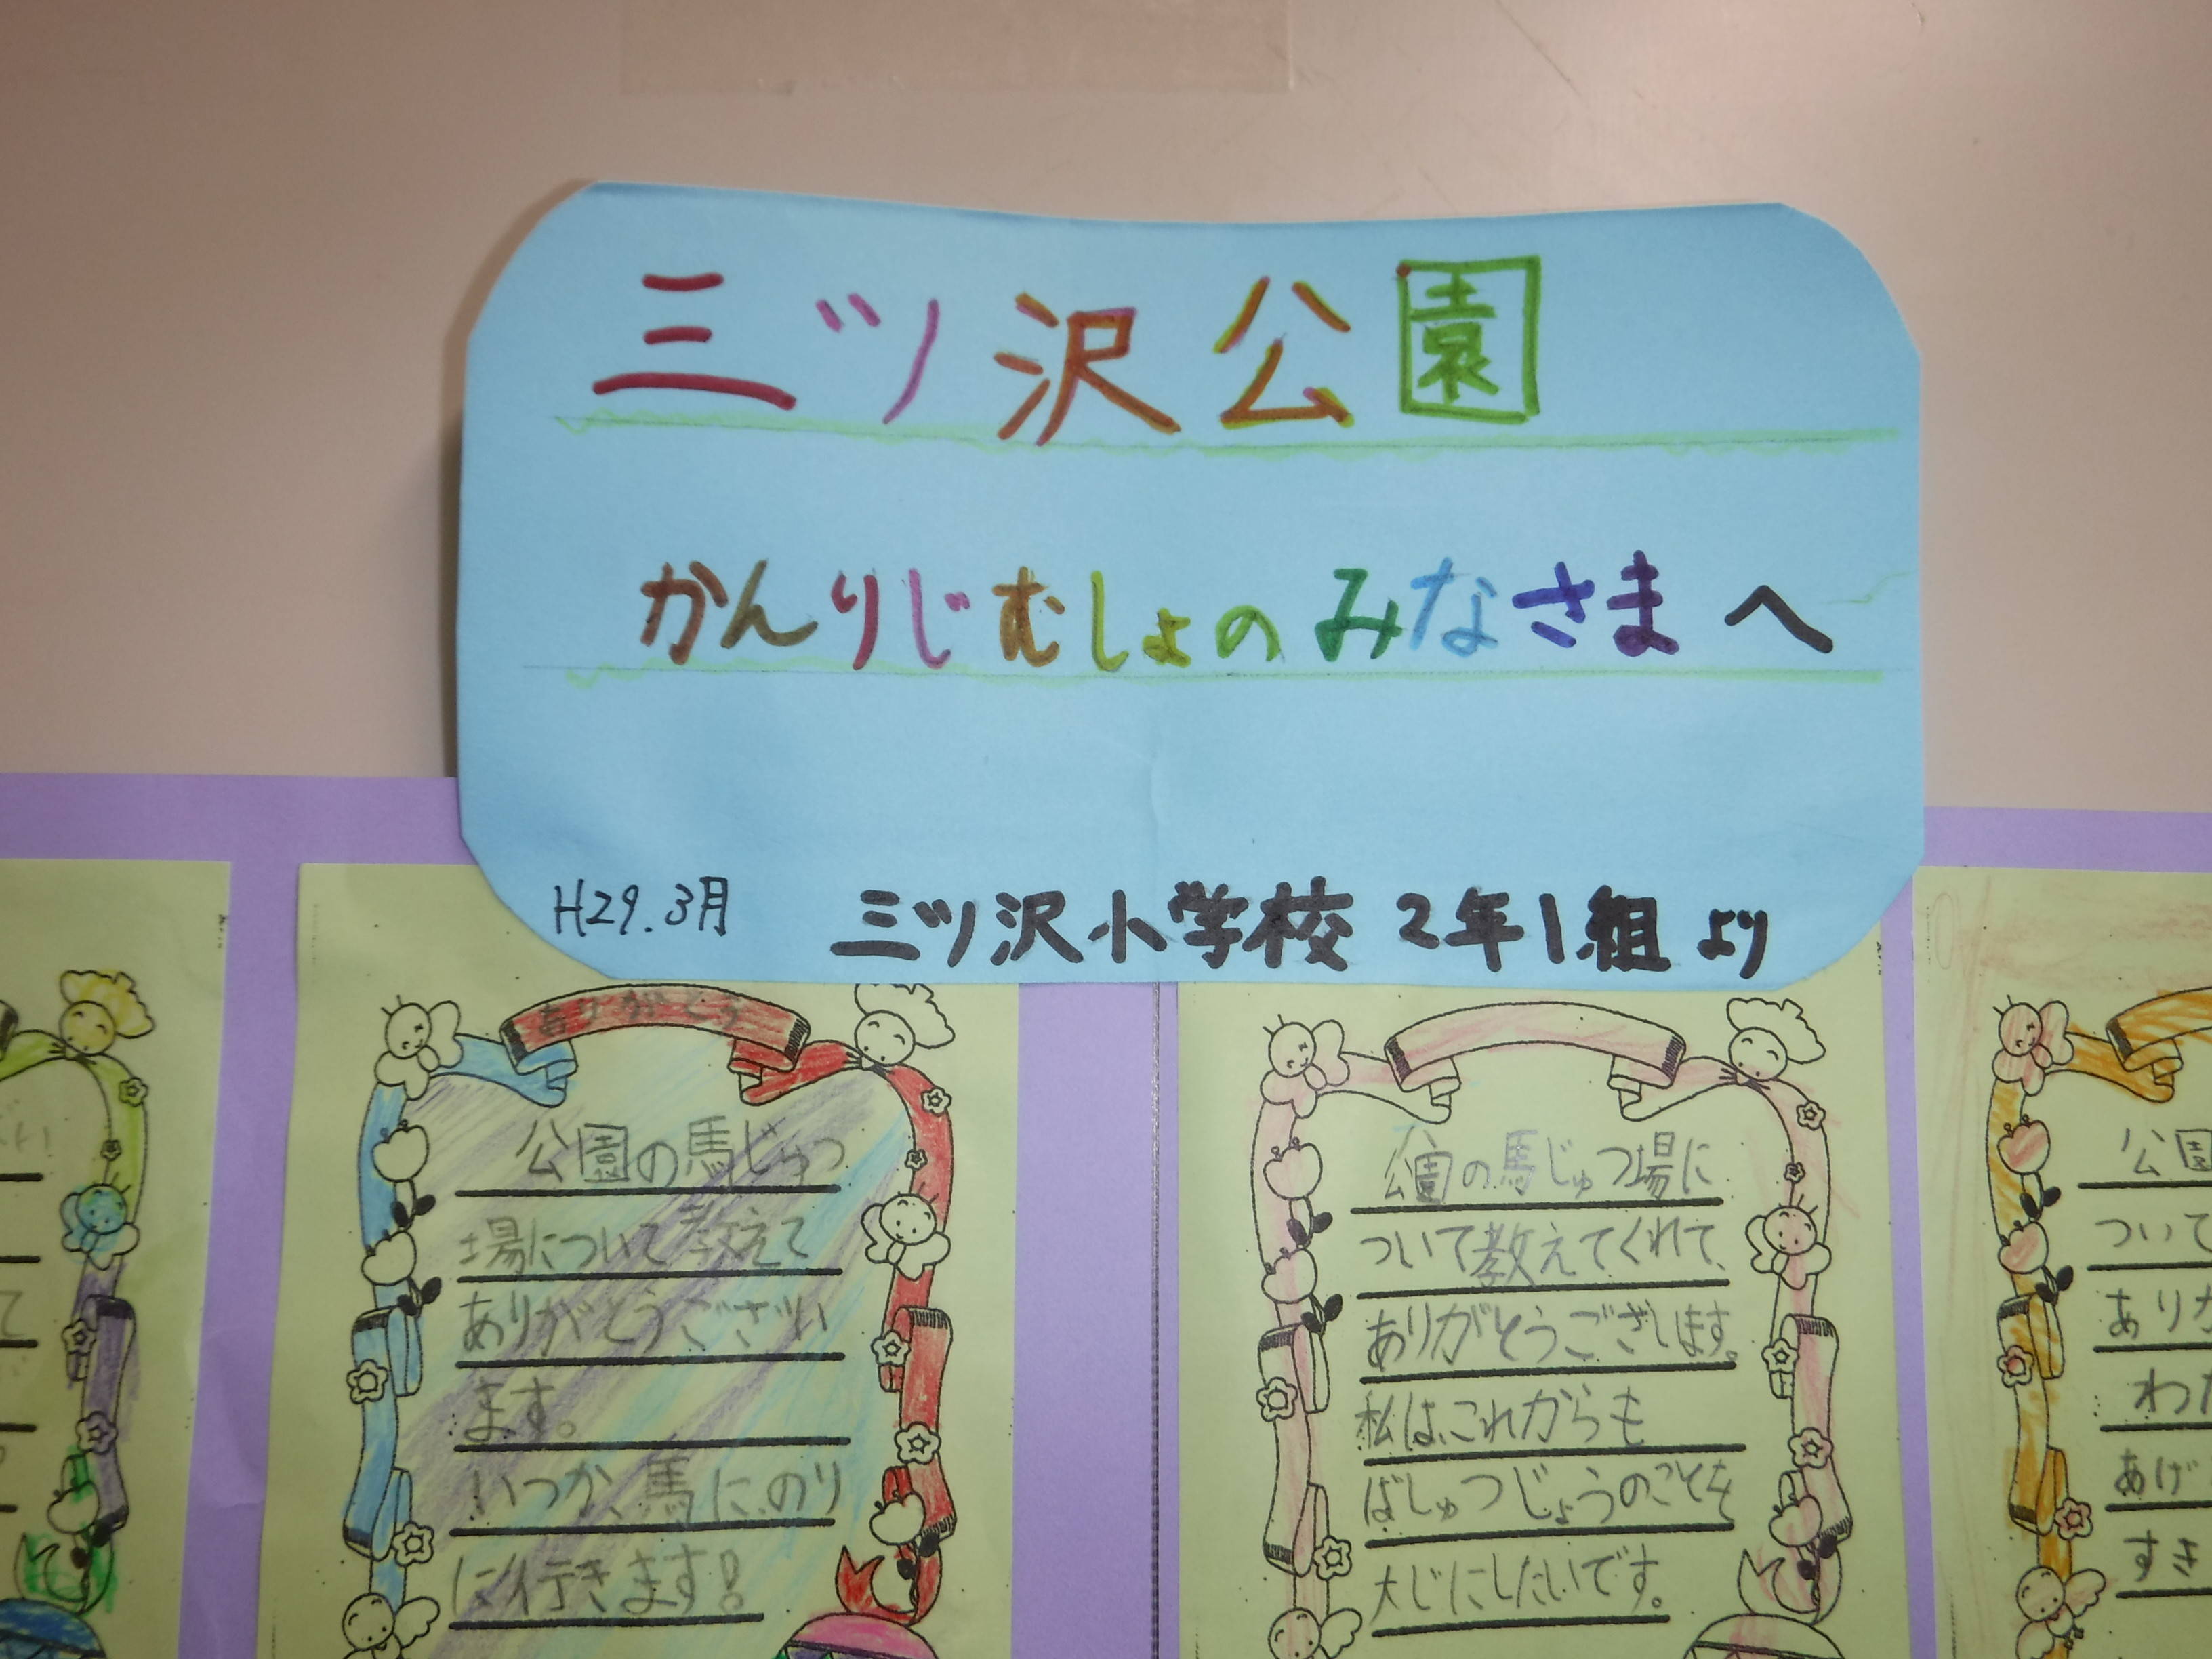 三ツ沢公園
かんりじむしょのみなさまへ
H29.3月
三ツ沢小学校 2年1組 より
ありがとう
公園の馬じゅつ
場について教えて
ありがとうござい
ます。
いつか、馬に、のり
に行きます!
公園の馬じゅつ場に
ついて教えてくれて、
ありがとうございます。
私は、これからも
ばしゅつじょうのことを
大じにしたいです。
公園
ついて
ありが
わた
あげ
すき